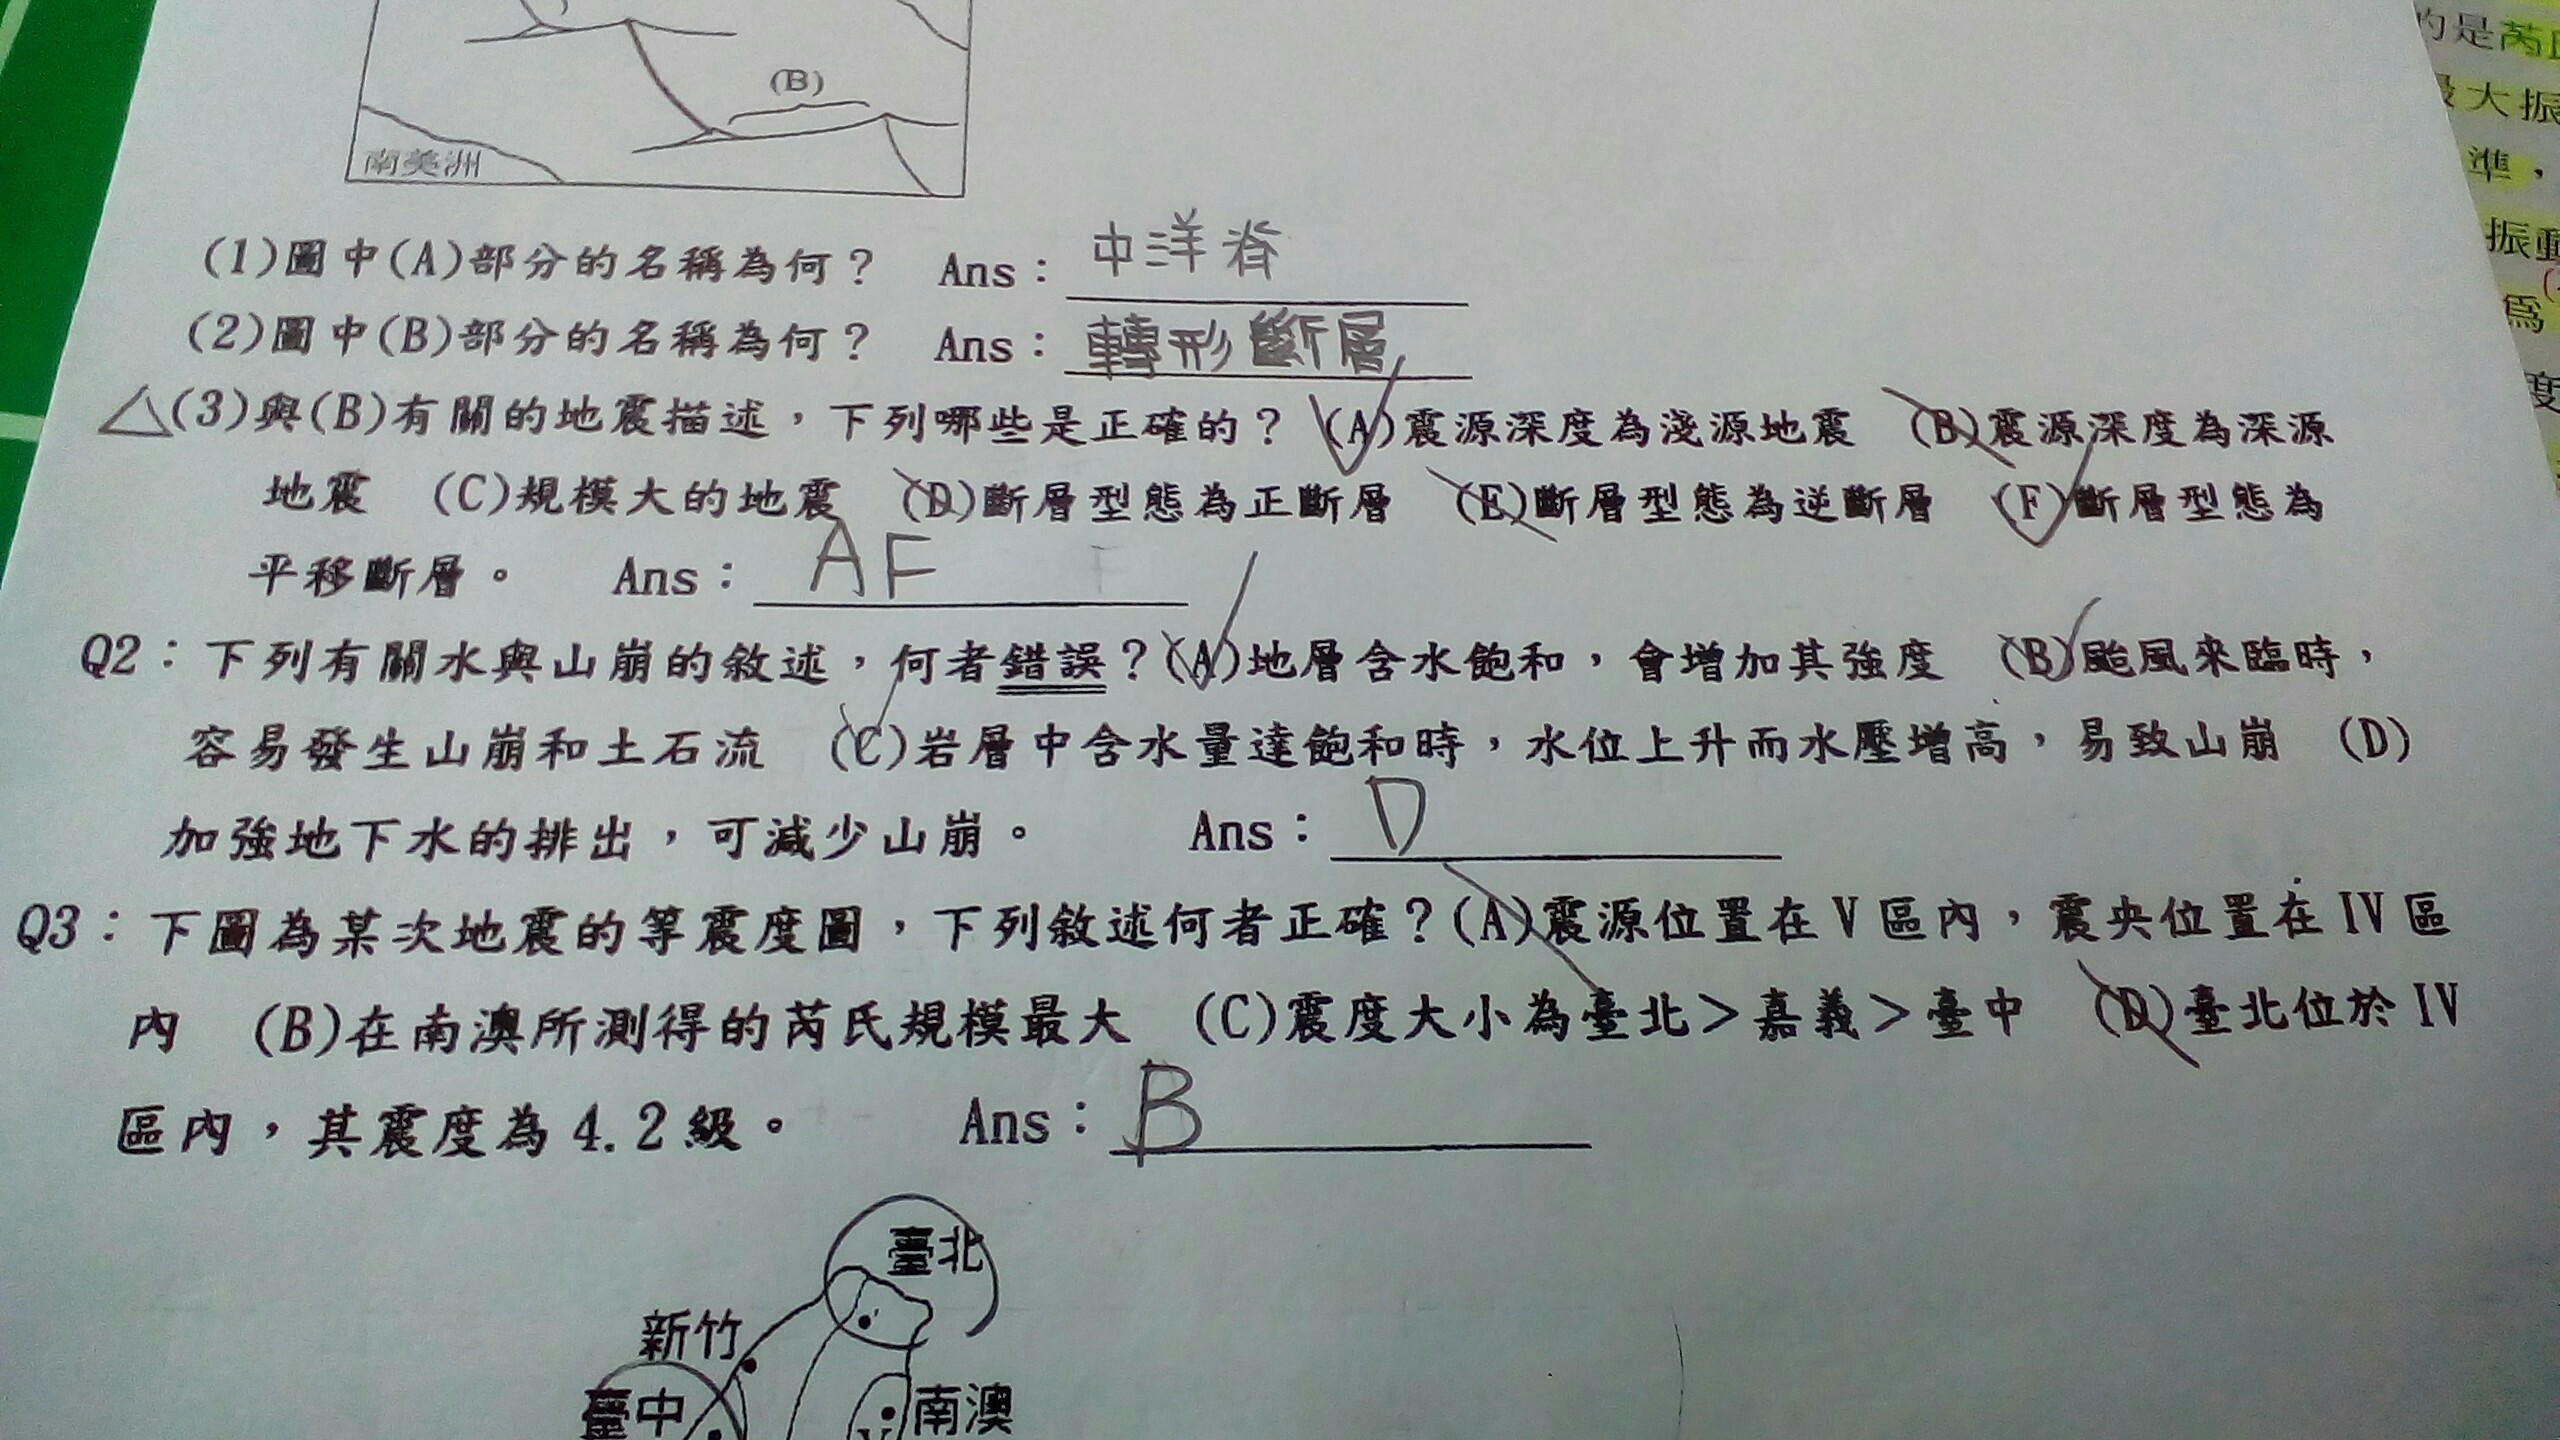 (B)
南美洲
(1)圖中(A)部分的名稱為何? Ans: 中洋脊
(2)圖中(B)部分的名稱為何? Ans: 轉形斷層
△(3)與(B)有關的地震描述,下列哪些是正確的? (A)震源深度為淺源地震 (B)震源深度為深源
地震 (C)規模大的地震 (D)斷層型態為正斷層 (E)斷層型態為逆斷層 (F)斷層型態為
平移斷層。 Ans: AF
Q2:下列有關水與山崩的敘述,何者錯誤?(A)地層含水飽和,會增加其強度 (B)颱風來臨時,
容易發生山崩和土石流 (C)岩層中含水量達飽和時,水位上升而水壓增高,易致山崩 (D)
加強地下水的排出,可減少山崩。 Ans: D
Q3:下圖為某次地震的等震度圖,下列敘述何者正確?(A)震源位置在V區內,震央位置在IV區
內 (B)在南澳所測得的芮氏規模最大 (C)震度大小為臺北>嘉義>臺中 (D)臺北位於IV
區內,其震度為4.2級。 Ans: B
臺北
新竹
臺中
南澳
的是芮
最大振
準,
振動
為
度